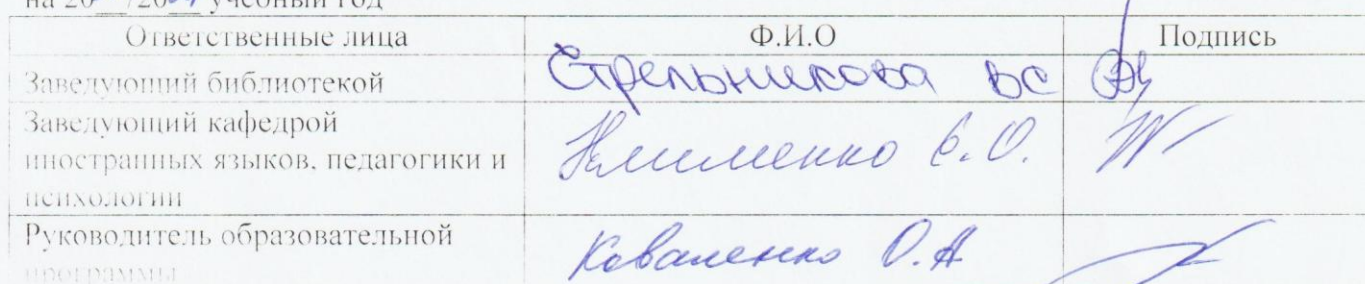 на 20__/20__ учебный год
Ответственные лица Ф.И.О Подпись
Заведующий библиотекой Стрельникова ВС
Заведующий кафедрой
иностранных языков, педагогики и
психологии
Клименко Е.О.
Руководитель образовательной
программы
Коваленко О.А